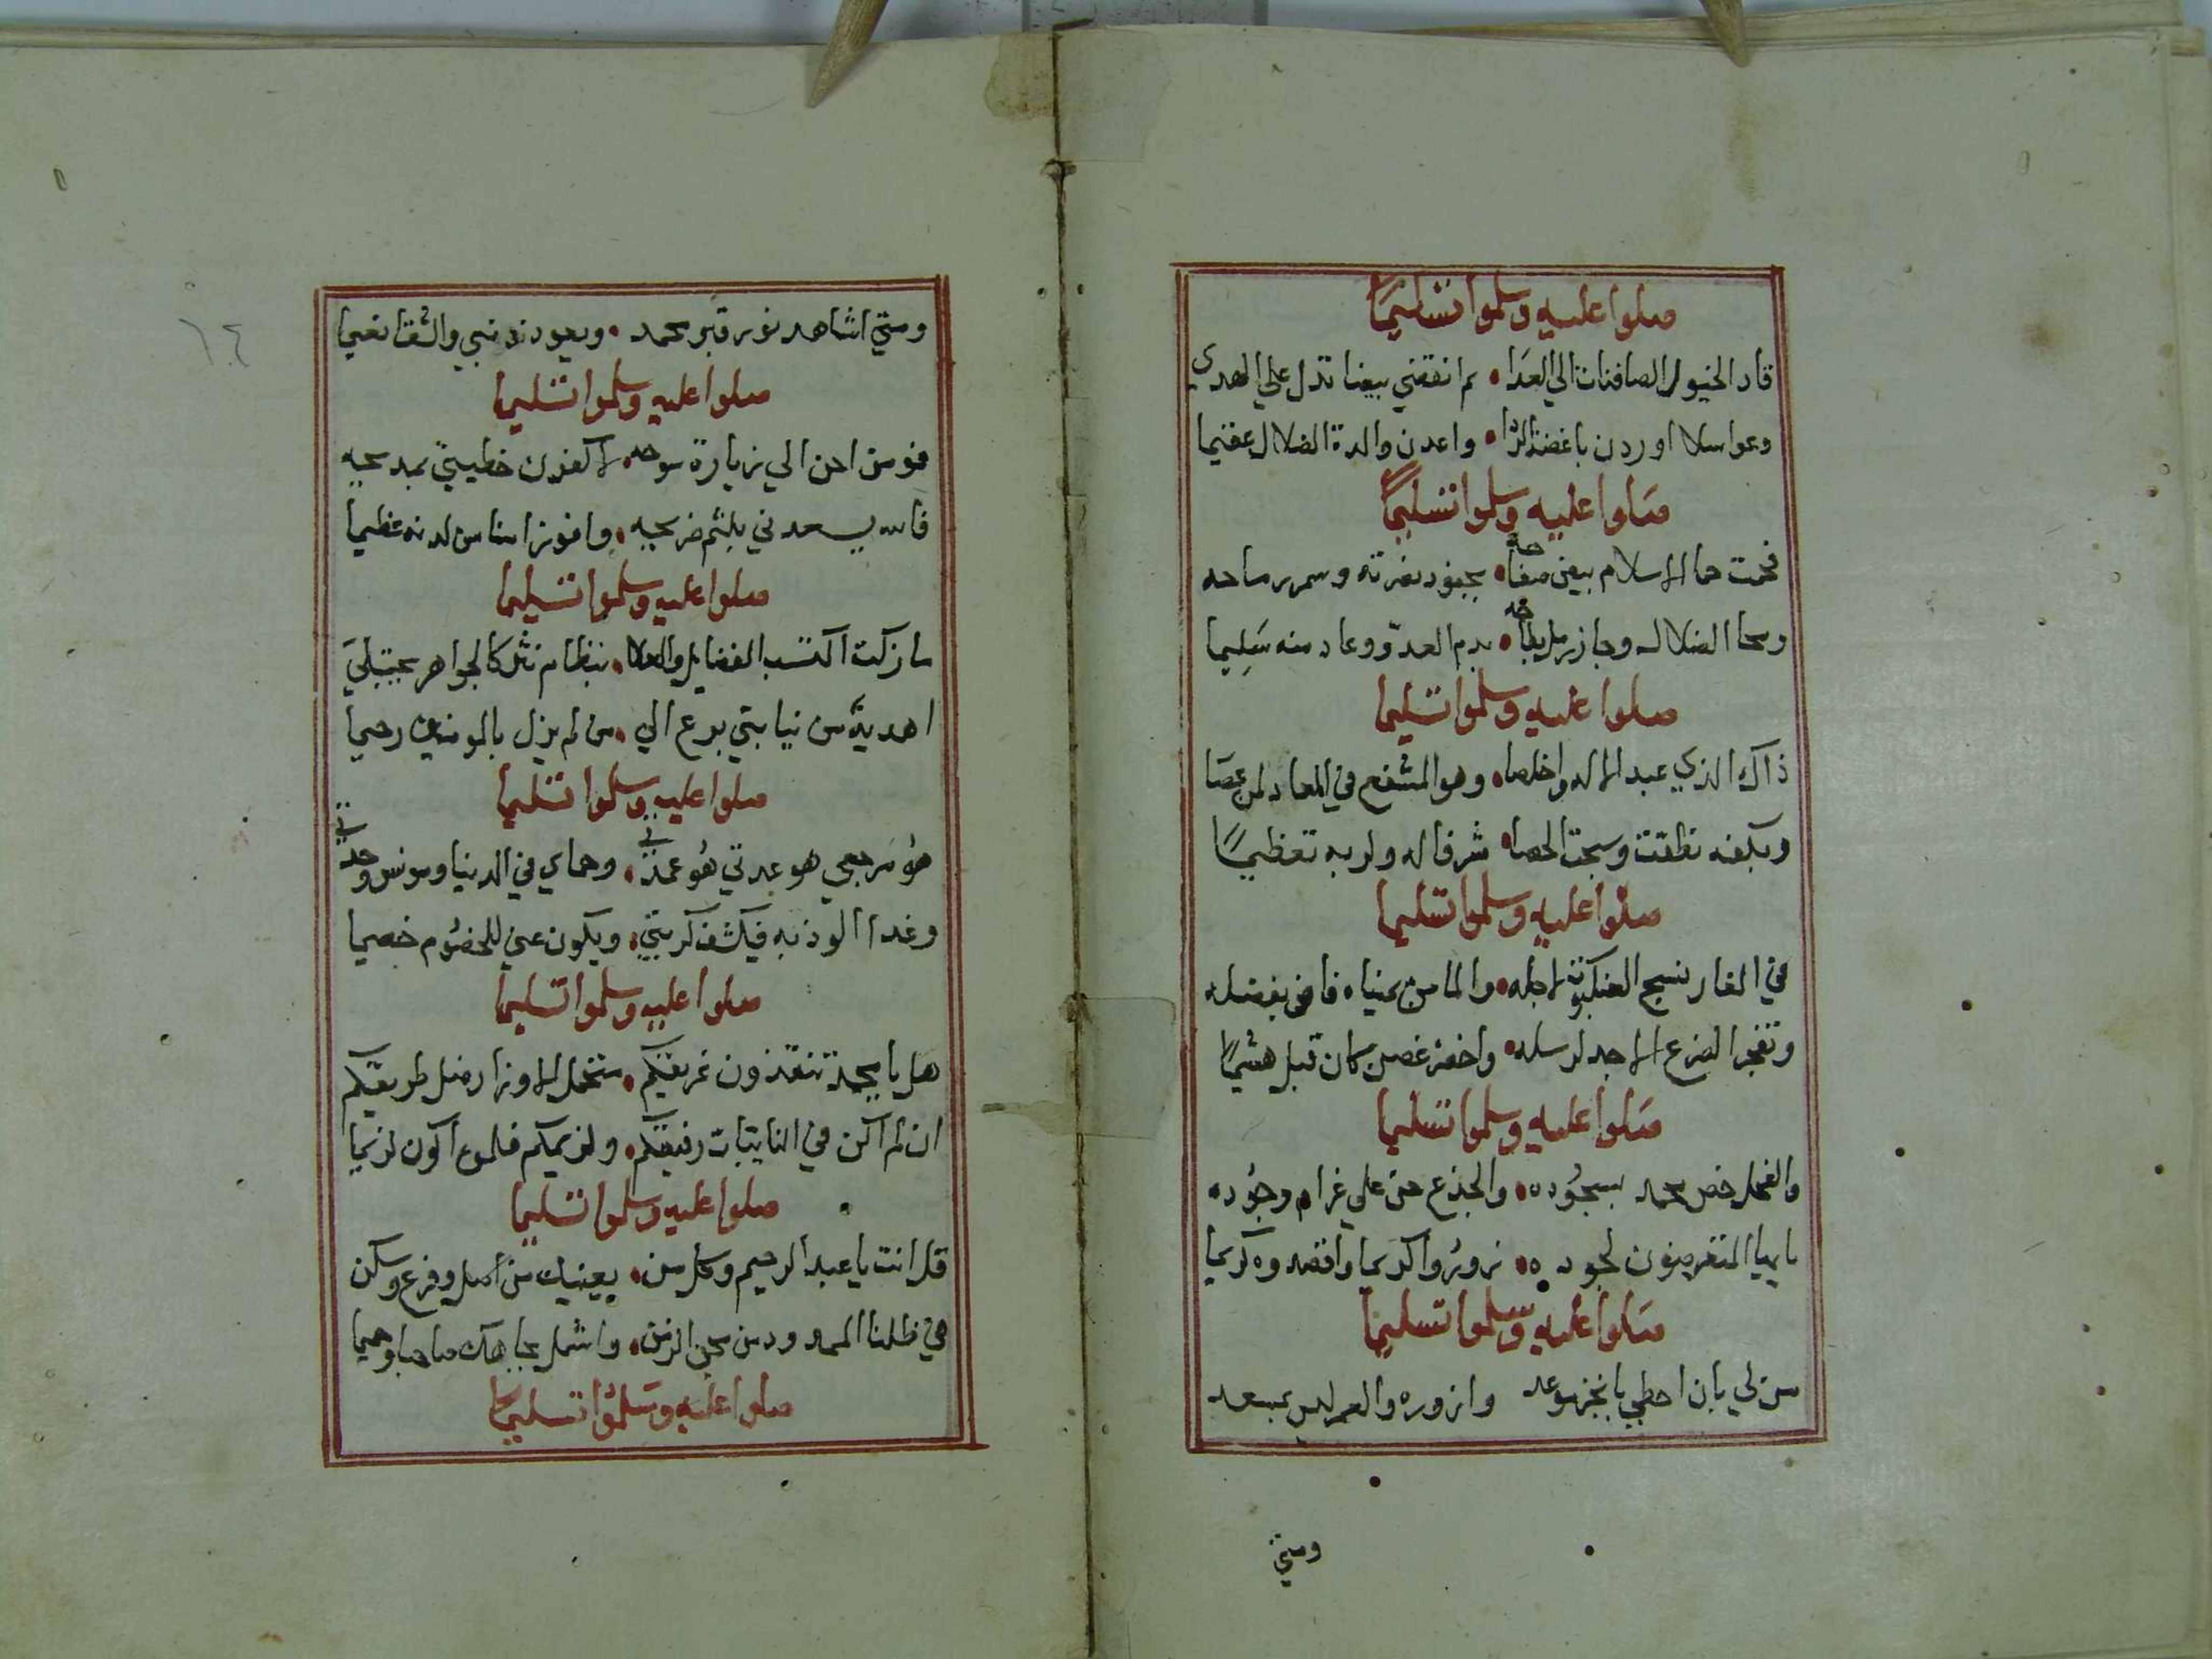 صلوا عليه وسلموا تسليمًا
قاد الخيول الصافنات الي العَدَا • ثم انتضي بيضا تدل علي الهدي
وعواسلا اوردن باغضة الردا • واعدن والدة الضلال عقيما
صَلوا عليه وسلموا تسليمًا
فحمت حما الاسلام بيض صفاحه • بجنود نصرته وسمر رماحه
ومحا الضلال وجاز رمل بطاحه • بدم العدوّ وعاد منه سَلِيما
صلوا عليه وسلموا تسليما
ذاك الذي عبد الاله واخلصا • وهو المشفع في المعاد لمن عصَا
وبكفه نطقت وسبحت الحصا • شرفا له ولربه تعظيمًا
صلوا عليه وسلموا تسليما
في الغار نسج العنكبوت لاجله • والما من يمناه فاض بفضله
وتفجر الضرع الاجد لرسله • واخضر غصن كان قبل هشيمًا
صَلوا عليه وسلموا تسليما
والفحل خص محمد بسجُوده • والجذع حن علي غرام وجُوده
يا ايها المتعرضون لجوده • زورُوا كريما واقصدوه كريما
صَلوا عليه وسلموا تسليما
من لي بان احظي بانجز موعد وازوره والعمر ليس بمبعد
ومتي
ومتي اشاهد نور قبر محمد • ويعود ذو نبي والشقا نعيما
صلوا عليه وسلموا تسليما
فو من احن الي زيارة سوحه • لاكفرن خطيتي بمديحه
فالله يسعدني بلثم ضريحه • وافوز امنا من لدنه عظيما
صلوا عليه وسلموا تسليما
ما زلت اكتسب الفضايل والعلا • بنظام نثر كالجواهر يجتبلي
اهدية من نيابتي برع الي • من لم يزل بالمومنين رحيما
صلوا عليه وسلموا تسليما
هُو مرجعي هو عدتي هُو عمدتي • وحماي في الدنيا ومونس وحدتي
وغدا الوذ به فيكشف كربتي • ويكون عني للخصُوم خصيما
صلوا عليه وسلموا تسليما
هل يا محمد تنقذون غريقكم • متحمل الاوزار ضل طريقكم
ان لم اكن في النايبات رفيقكم • ولزيمكم فلمن اكون لزيما
صلوا عليه وسلموا تسليما
قل انت يا عبد الرحيم وكل من • يعنيك من اصل وفرع وسكن
في ظلنا الممدود من محن الزمن • واشمل بجاهك صاحبا وحميا
صلوا عليه وسَلمُوا تسليمًا
١٤